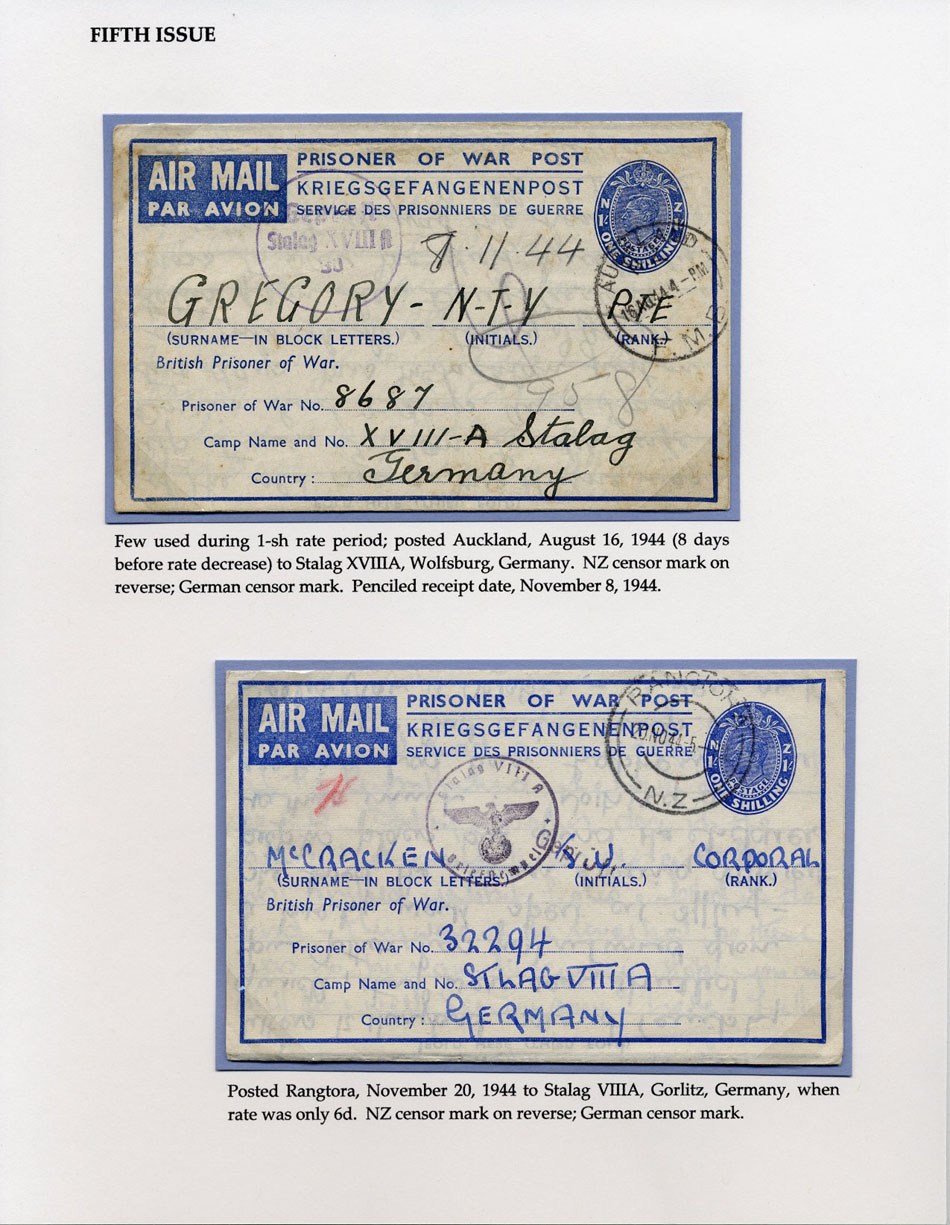 FIFTH ISSUE
AIR MAIL
PAR AVION
PRISONER OF WAR POST
KRIEGSGEFANGENENPOST
SERVICE DES PRISONNIERS DE GUERRE
N Z
1/- 1/-
POSTAGE
ONE SHILLING
Stalag XVIII A
8.11.44
16 AU 44 4-PM
GREGORY - N-T-Y PTE
(SURNAME—IN BLOCK LETTERS.) (INITIALS.) (RANK.)
British Prisoner of War.
958
Prisoner of War No. 8687
Camp Name and No. XVIII-A Stalag
Country: Germany
Few used during 1-sh rate period; posted Auckland, August 16, 1944 (8 days
before rate decrease) to Stalag XVIIIA, Wolfsburg, Germany. NZ censor mark on
reverse; German censor mark. Penciled receipt date, November 8, 1944.
AIR MAIL
PAR AVION
PRISONER OF WAR POST
KRIEGSGEFANGENENPOST
SERVICE DES PRISONNIERS DE GUERRE
N.Z.
20 NO 44
N Z
1/- 1/-
POSTAGE
ONE SHILLING
Stalag VIII A
McCRACKEN CORPORAL
(SURNAME—IN BLOCK LETTERS.) (INITIALS.) (RANK.)
British Prisoner of War.
Prisoner of War No. 32294
Camp Name and No. STLAG VIII A
Country: GERMANY
Posted Rangtora, November 20, 1944 to Stalag VIIIA, Gorlitz, Germany, when
rate was only 6d. NZ censor mark on reverse; German censor mark.